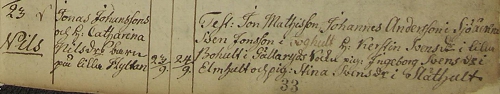 23
Jonas Johansons
och h: Catharina
Nilsdr barn
på lilla Hyltan
Nils
23/9 24/9
Test: Jon Mathisson, Johannes Anderson i Sjöarna
Ben Jonsson i Boghult h: Kierstin Svensdr i lilla
Bohult i Gällaryds Sokn pig: Ingeborg Svensdr i
Elmhult och pig: Stina Svensdr i Måthult
33